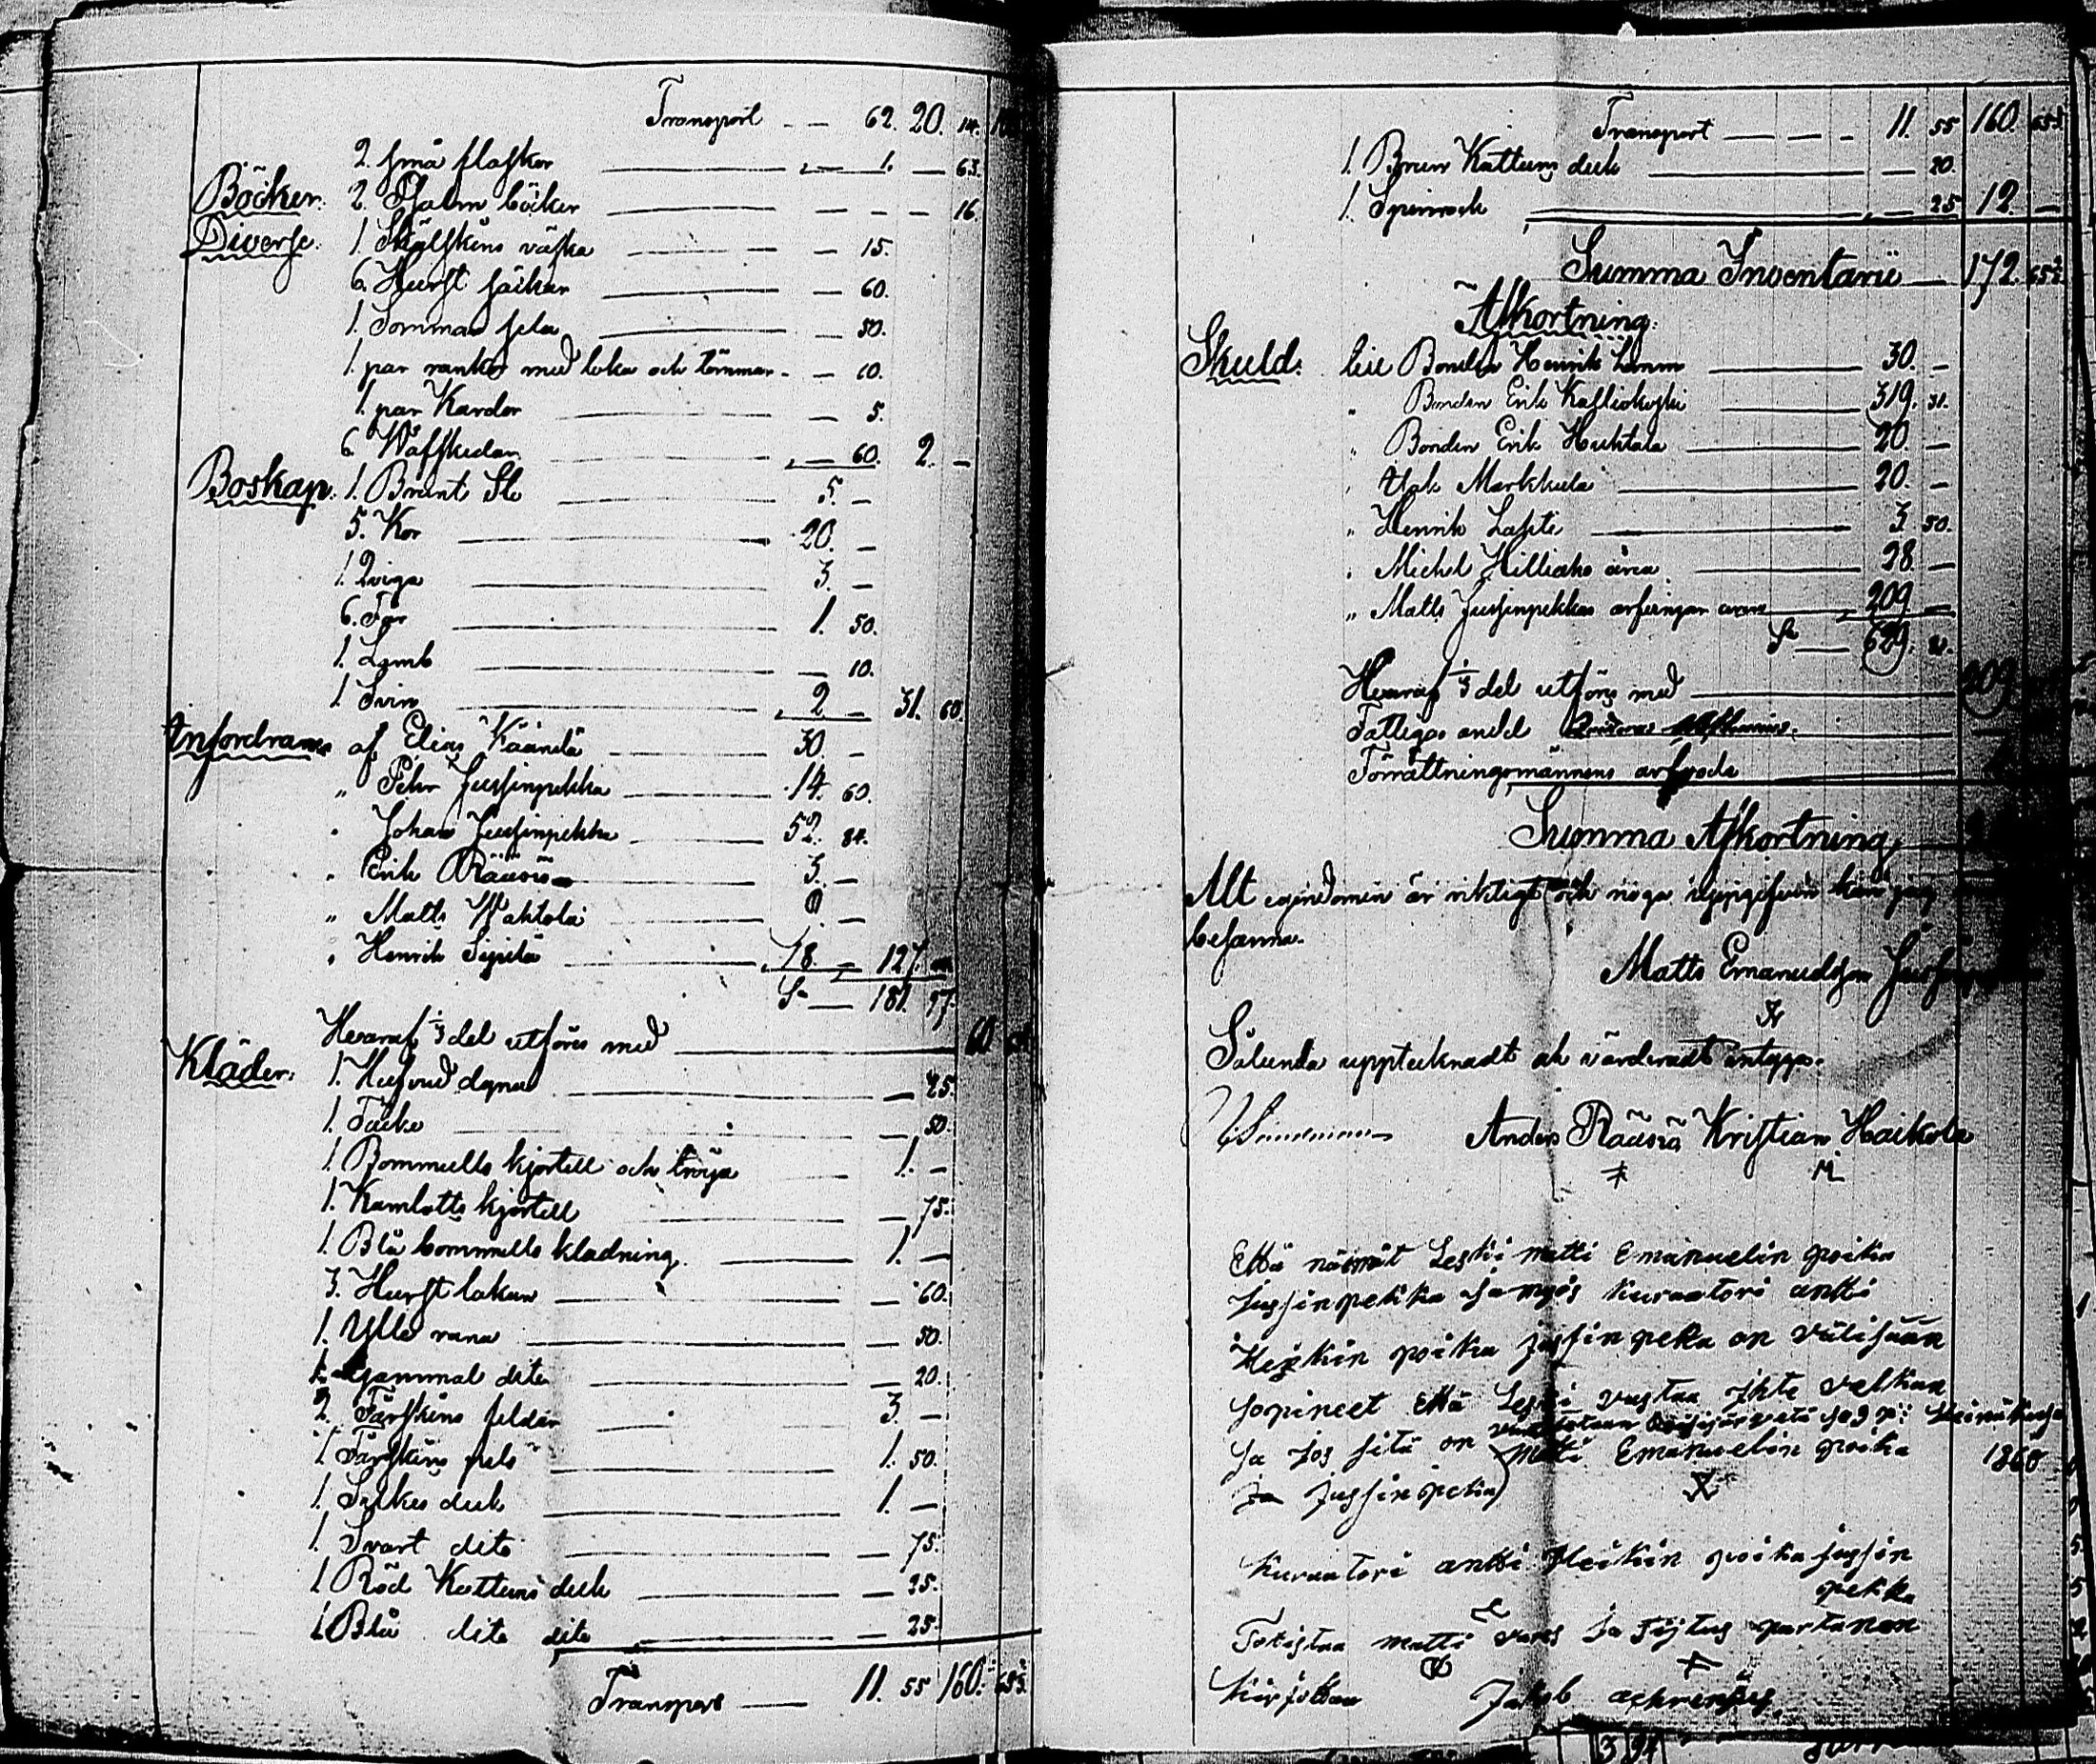 Transport — — 62. 20. 14.
2. små flaskor — 1. — 63.
Böcker. 2. Psalm böcker — — — 16.
Diverse. 1. Skälskins väska — 15.
6. Hurst säckar — 60.
1. Sommar sela — 50.
1. par rankor med loka och tömmar — 10.
1. par Kardor — 5.
6. Wäfskedar — 60. 2. —
Boskap. 1. Brunt Sto 5. —
5. Kor 20. —
1. Qviga 3. —
6. Får 1. 50.
1. Lamb — 10.
1. Svin 2 — 31. 60.
Infordrans af Elias Käändä 30. —
" Pehr Jussinpekka 14. 60.
" Johan Jussinpekka 52. 84.
" Erik Räisä 3. —
" Matts Wahtola —
" Henrik Sipilä 18. — 127.
Sa — 181. 97.
Heraraf 1/3 del utföres med 60
Kläder. 1. Hufvud dyna — 25.
1. Täcke — 50.
1. Bommulls kjortell och tröja 1. —
1. Kamlotts kjortell — 75.
1. Blå bommulls kladning 1. —
3. Hurst lakan — 60.
1. Ylle rana — 50.
1. gammal dito — 20.
2. Fårskins feldar 3. —
1. Fårskins pels 1. 50.
1. Silkes duk 1. —
1. Svart dito — 75.
1. Röd Kattuns duk — 25.
1. Blå dito dito — 25.
Transport — 11. 55 160. 65⅔
Transport — — — 11. 55 160. 65⅔
1. Brun Kattuns duk — 20.
1. Spinrock — 25 12. —
Summa Inventarii — 172. 65⅔
Afkortning.
Skuld: till Bonden Henrik Lamm 30. —
" Bonden Erik Kalliokoski 319. 31.
" Bonden Erik Huhtala 20. —
" Isak Markkula 20. —
" Henrik Lahti 3 50.
" Michel Hilliaho 28. —
" Matts Jussinpekkas arfvingar 209 —
Sa — 629. 81.
Heraraf 1/3 del utförs med 209
Fattigas andel
Förrättningsmännens arfvode
Summa Afkortning
Alt egindomen är riktigt och noga uppgifven kan jag
besanna.
Matts Emanuelsson
Sålunda upptecknadt och värderadt intyga.
Anders Räisä Kristian Haikola
Että näämät Leski matti Emanuelin poika
Jussinpekka ja myös kuraatori antti
Heikin poika Jussinpeka on välisään
sopineet että Leski vastaa
Ja jos sitä on matti Emanuelin poika 1860
Jussinpeka
Kuraatori antti Heikin poika Jussin
pekka
Totistaa matti ja partanen
Kirjottaa Jakob